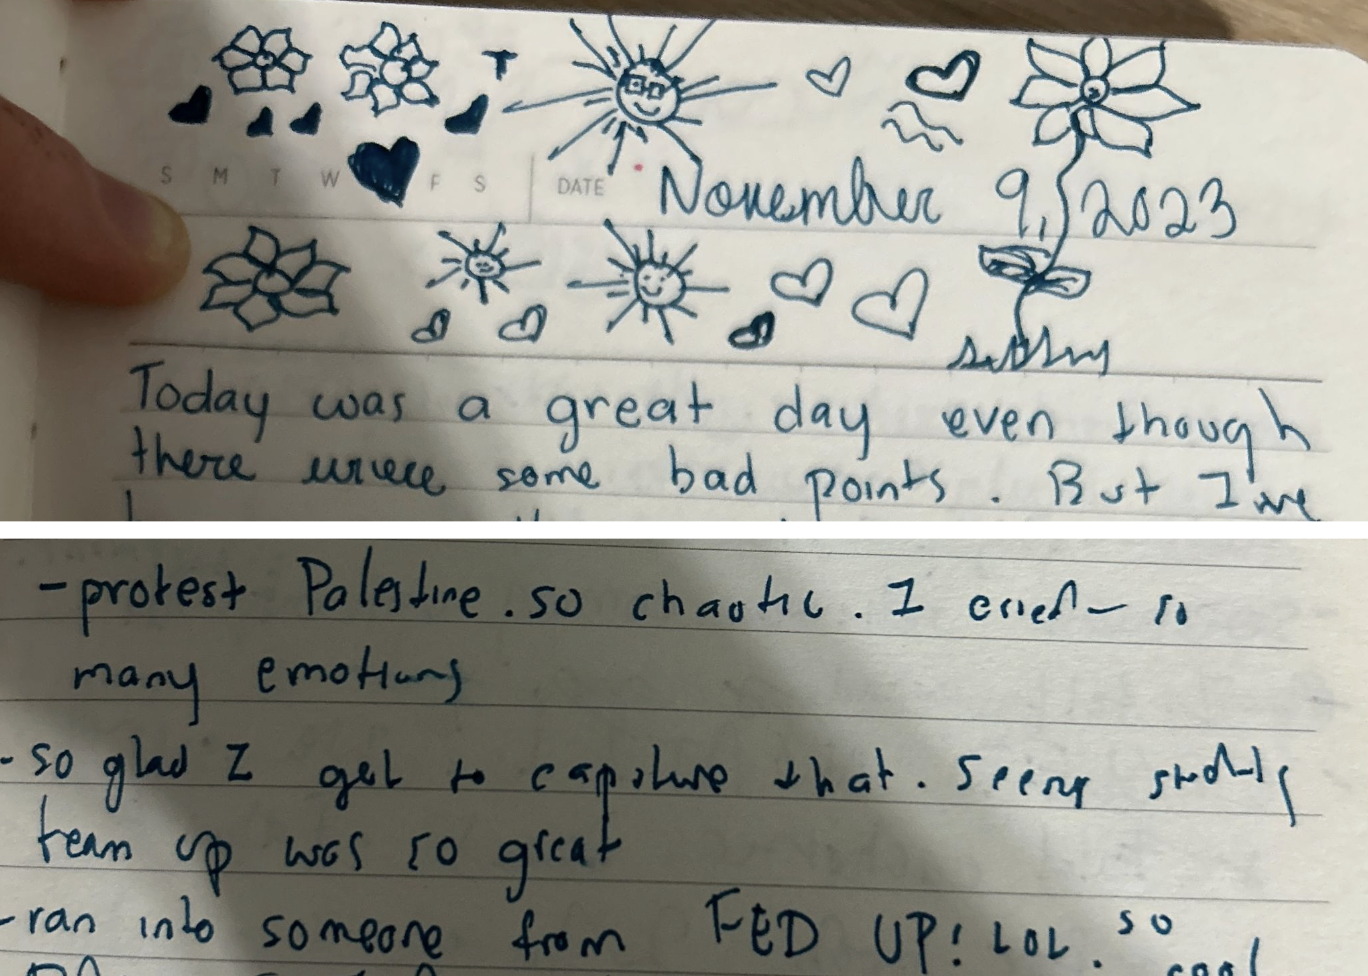 T
S M T W F S DATE November 9, 2023
Today was a great day even though
there were some bad points. But I've
-protest Palestine. so chaotic. I cried- so
many emotions
-so glad I get to capture that. Seeing
team up was so great
-ran into someone from FED UP! LOL. so
cool